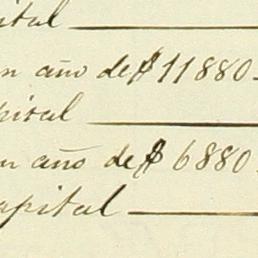 ital
n año de $11880
pital
un año de $6880
apital